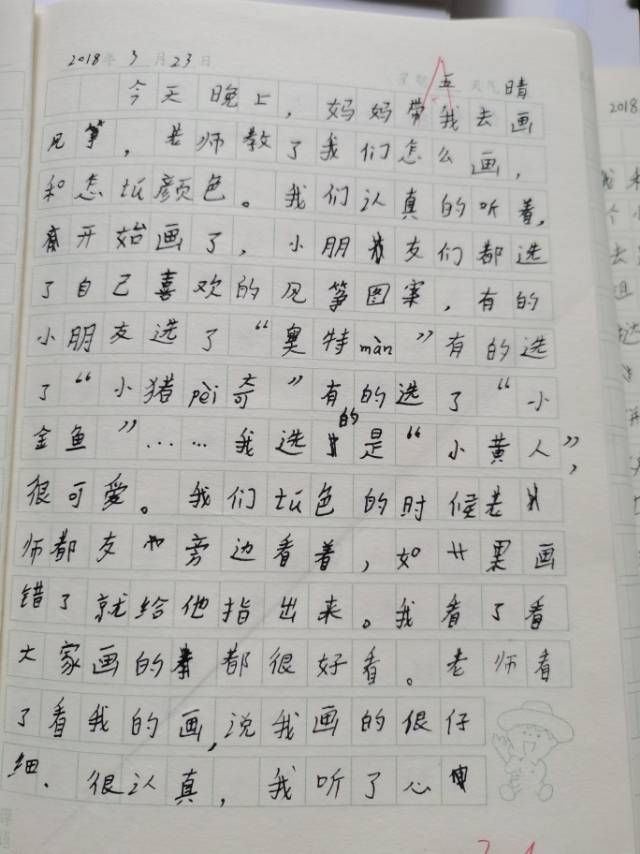 2018年3月23日 星期五 天气晴
今天晚上，妈妈带我去画
风筝，老师教了我们怎么画，
和怎坛颜色。我们认真的听着，
开始画了，小朋友们都选
了自己喜欢的风筝图案，有的
小朋友选了“奥特màn”有的选
了“小猪pèi奇”有的选了“小
金鱼”……我选的是“小黄人”，
很可爱。我们坛色的时候老
师都友旁边看着，如果画
错了就给他指出来。我看了看
大家画的都很好看。老师看
了看我的画，说我画的很仔
细、很认真，我听了心
2018